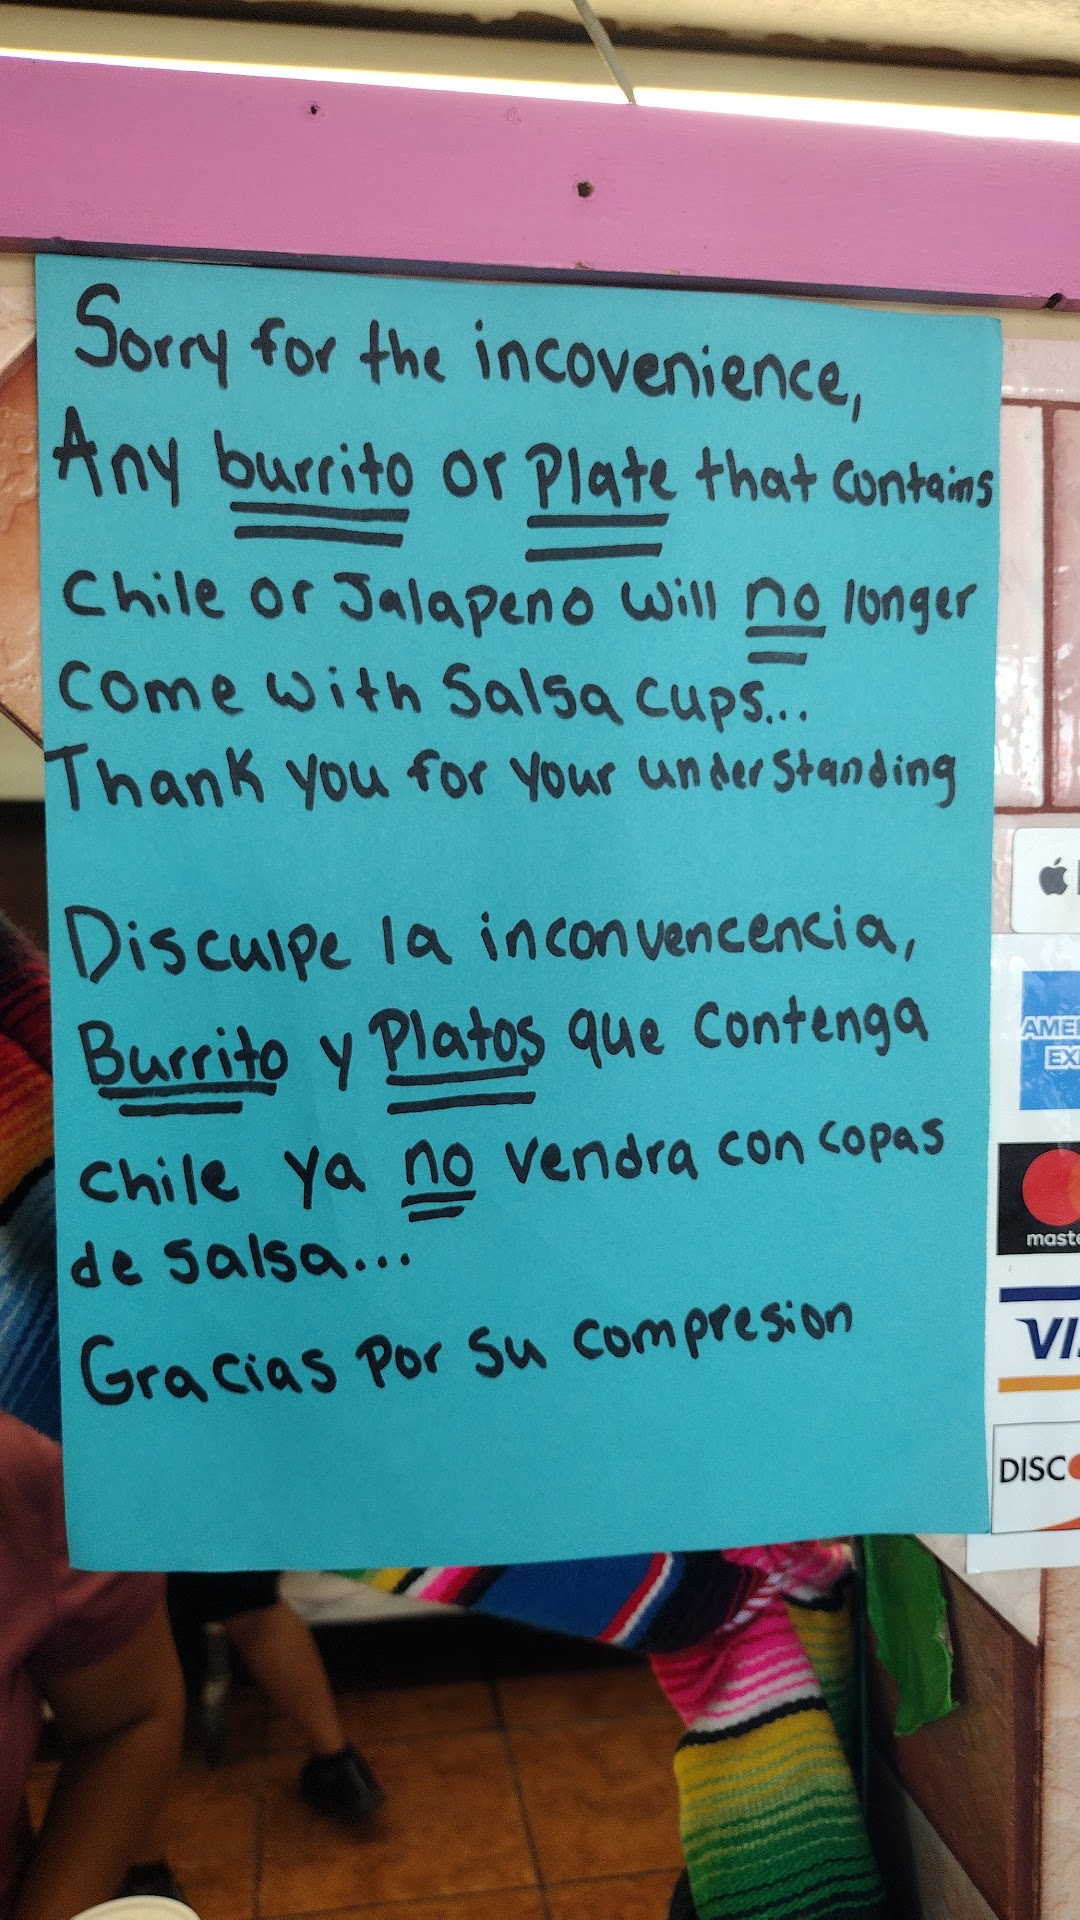 Sorry for the incovenience,
Any burrito or Plate that contains
Chile or Jalapeno will no longer
Come with Salsa cups...
Thank you for your understanding
Disculpe la inconvencencia,
Burrito y Platos que contenga
chile ya no vendra con copas
de salsa...
Gracias por su compresion
AME
EX
maste
VI
DISC